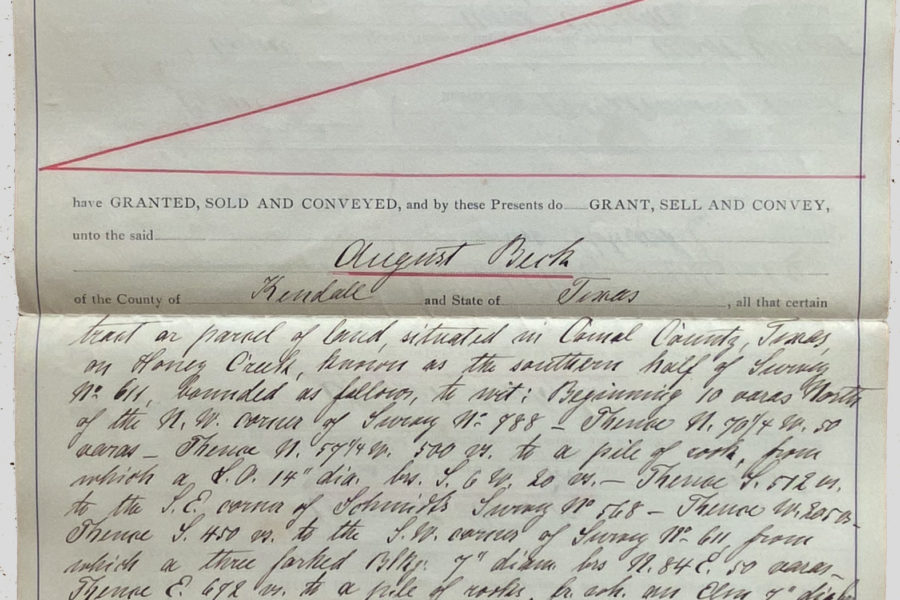 have GRANTED, SOLD AND CONVEYED, and by these Presents do GRANT, SELL AND CONVEY,
unto the said
August Beck
of the County of Kendall and State of Texas, all that certain
tract or parcel of land, situated in Comal County, Texas,
on Honey Creek, known as the southern half of Survey
No. 611, bounded as follows, to wit: Beginning 10 varas North
of the N.W. corner of Survey No. 788 – Thence N. 70 1/4 W. 50
varas – Thence N. 57 1/4 W. 500 vs. to a pile of rock, from
which a L.O. 14" dia. brs. S. 6 W. 20 vs. – Thence S. 512 vs.
to the S.E. corner of Schmidt's Survey No 568 – Thence W.
Thence S. 450 vs. to the S.W. corner of Survey No. 611, from
which a three forked Blkj. 7" diam brs N. 84 E. 50 varas –
Thence E. 692 vs. to a pile of rocks, fr. wh. an Elm 7"